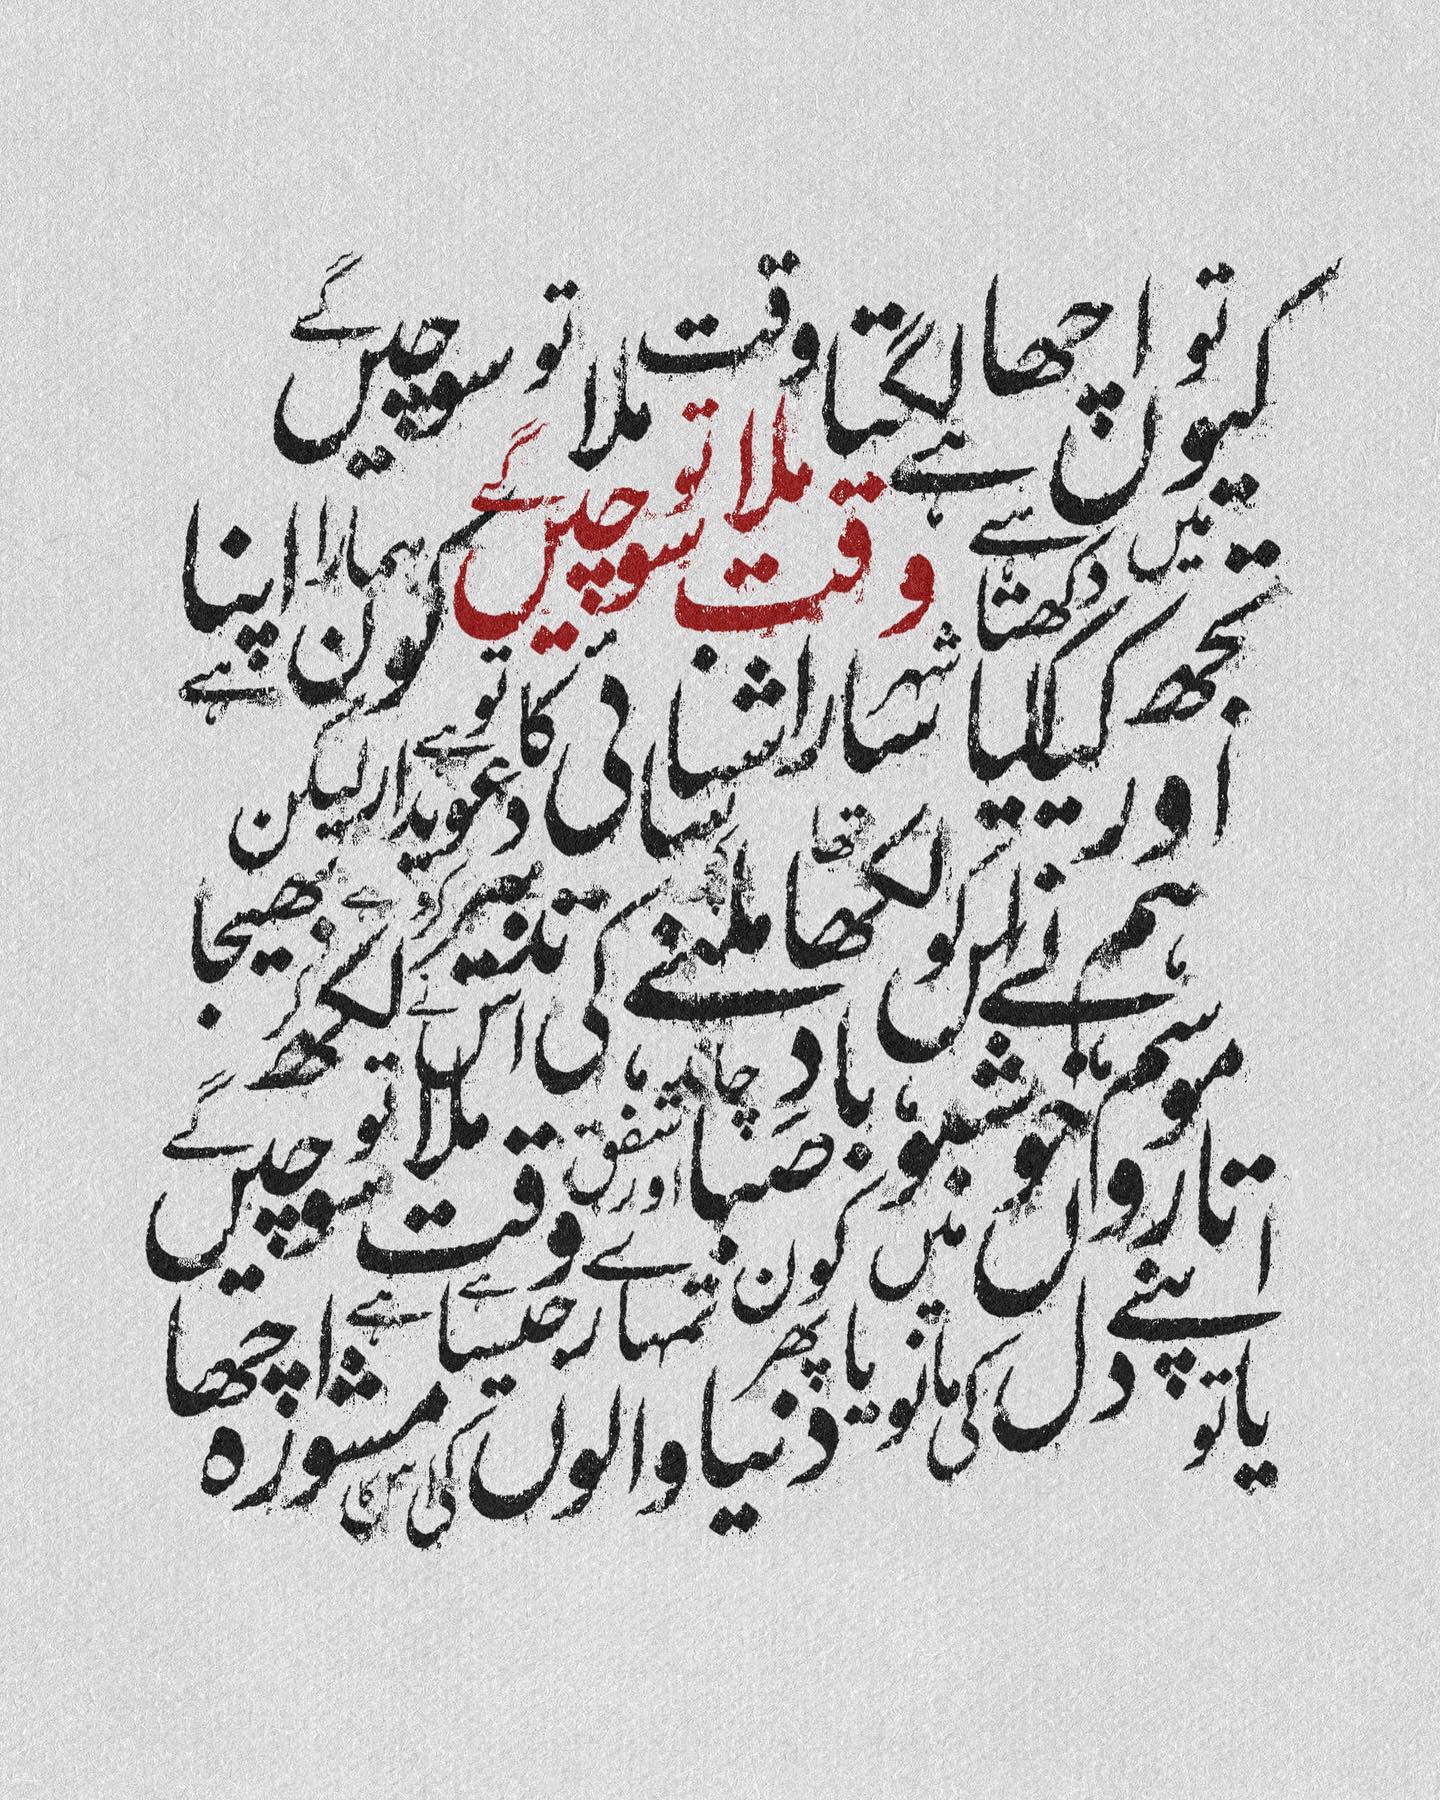 کیوں تو اچھا لگتا ہے وقت ملا تو سوچیں گے
تجھ میں کیا کیا دکھتا ہے وقت ملا تو سوچیں گے
سارا شہر شناسائی کا دعویدار تو ہے لیکن
کون ہمارا اپنا ہے
اور
ہم نے اس کو لکھا تھا کچھ ملنے کی تدبیر کرو
اس نے لکھ کر بھیجا ہے
موسم، خوشبو، بادِ صبا، چاند، شفق اور تاروں میں
کون تمہارے جیسا ہے وقت ملا تو سوچیں گے
یا تو اپنے دل کی مانو یا پھر دنیا والوں کی
مشورہ اس کا اچھا ہے